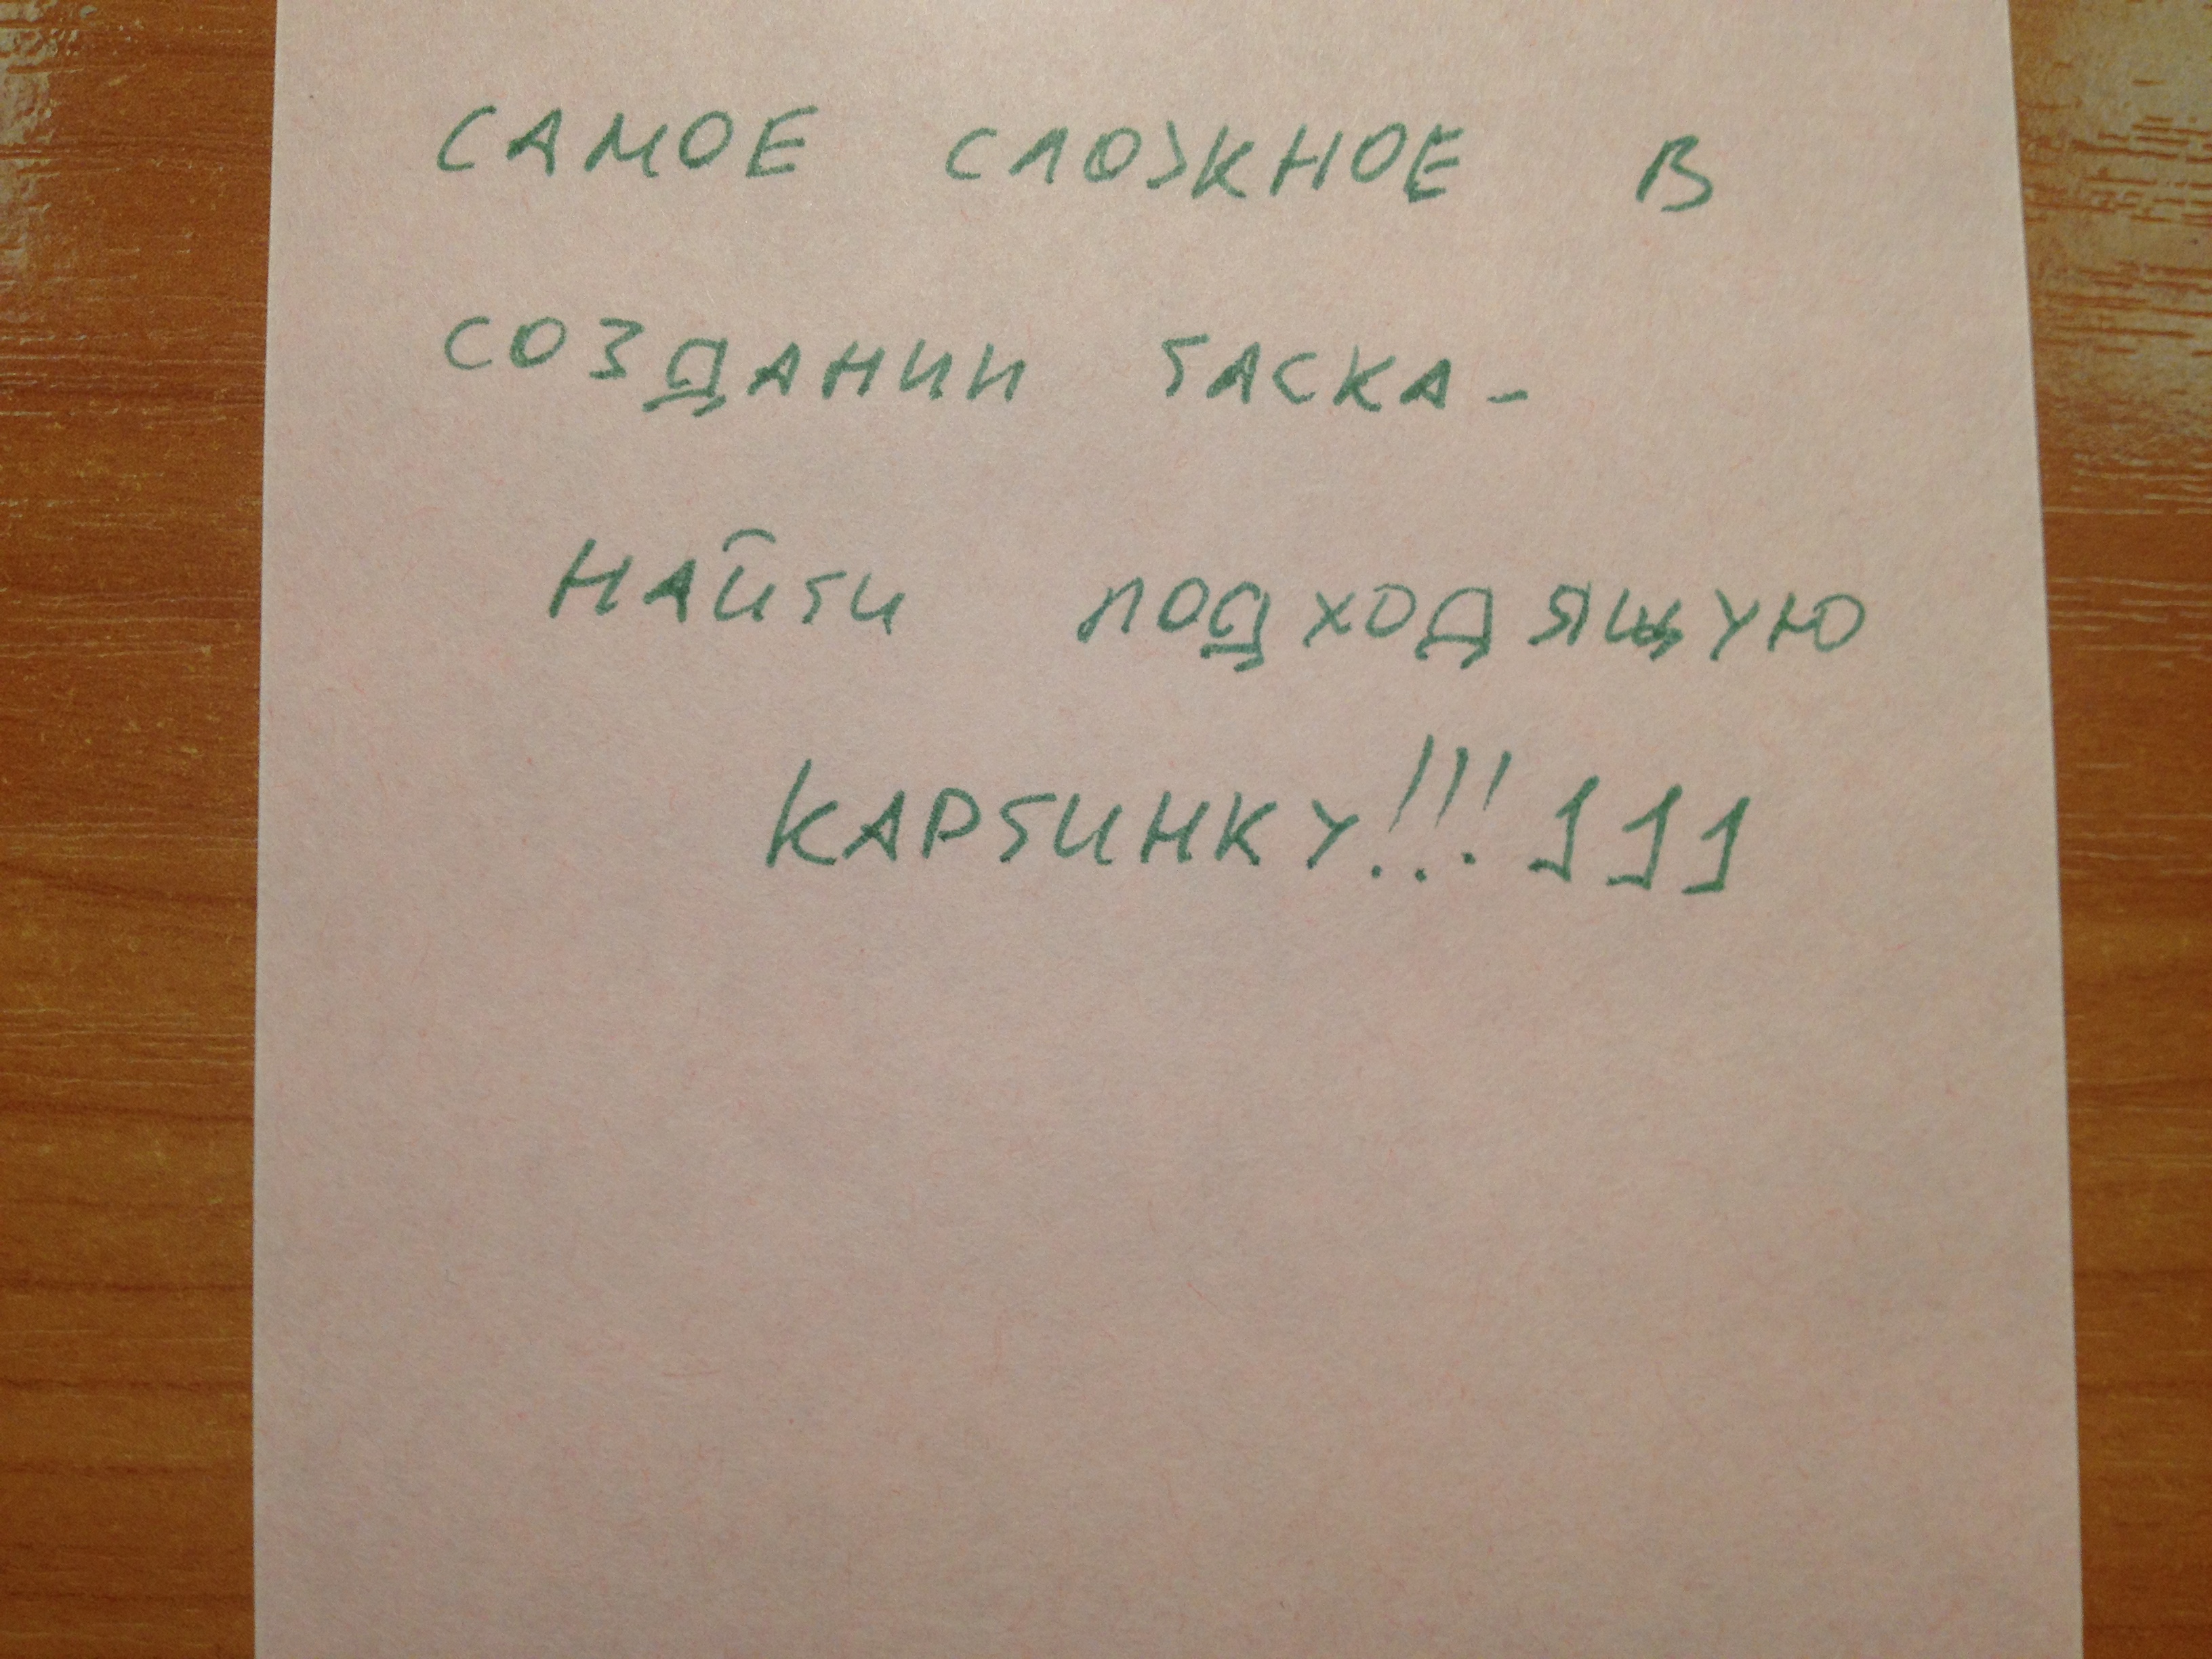 САМОЕ СЛОЖНОЕ В
СОЗДАНИИ ТАСКА -
НАЙТИ ПОДХОДЯЩУЮ
КАРТИНКУ!!!111